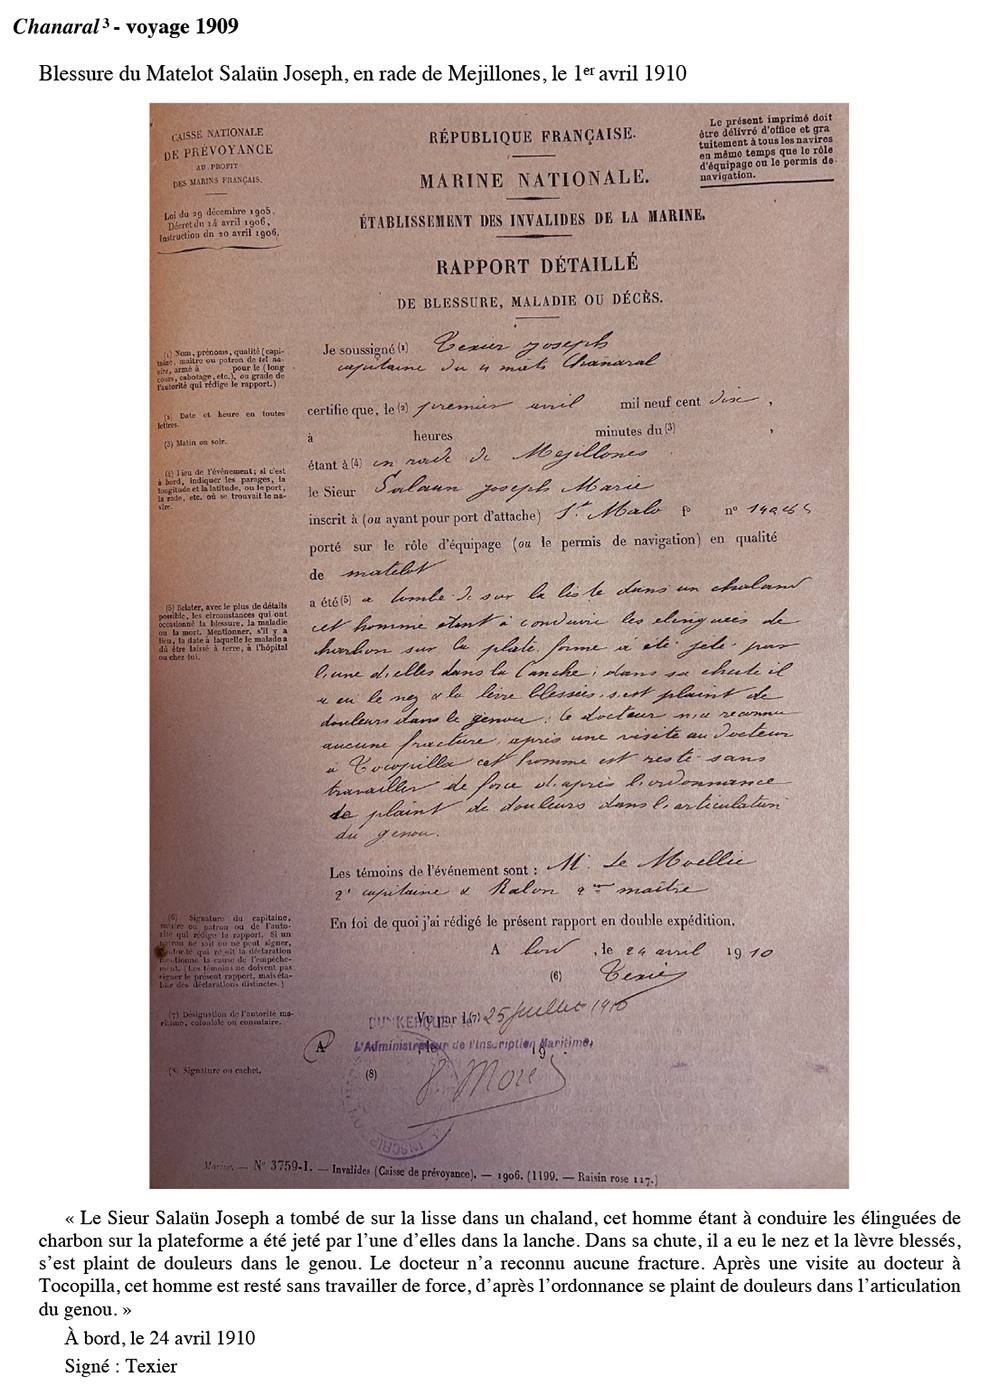 Chanaral ³ - voyage 1909
Blessure du Matelot Salaün Joseph, en rade de Mejillones, le 1er avril 1910
CAISSE NATIONALE
DE PRÉVOYANCE
AU PROFIT
DES MARINS FRANÇAIS.
Loi du 29 décembre 1905.
Décret du 14 avril 1906,
Instruction du 20 avril 1906.
RÉPUBLIQUE FRANÇAISE.
MARINE NATIONALE.
ÉTABLISSEMENT DES INVALIDES DE LA MARINE.
RAPPORT DÉTAILLÉ
DE BLESSURE, MALADIE OU DÉCÈS.
Le présent imprimé doit
être délivré d'office et gra
tuitement à tous les navires
en même temps que le rôle
d'équipage ou le permis de
navigation.
(1) Nom, prénoms, qualité (capi-
taine, maître ou patron de tel na-
vire, armé à pour le (long
cours, cabotage, etc.), ou grade de
l'autorité qui rédige le rapport.)
(2) Date et heure en toutes
lettres.
(3) Matin ou soir.
(4) Lieu de l'événement; si c'est
à bord, indiquer les parages, la
longitude et la latitude, ou le port,
la rade, etc. où se trouvait le na-
vire.
(5) Relater, avec le plus de détails
possible, les circonstances qui ont
occasionné la blessure, la maladie
ou la mort. Mentionner, s'il y a
lieu, la date à laquelle le malade a
dû être laissé à terre, à l'hôpital
ou chez lui.
(6) Signature du capitaine,
maître ou patron ou de l'auto-
rité qui rédige le rapport. Si un
patron ne sait ou ne peut signer,
l'autorité qui reçoit la déclaration
mentionne la cause de l'empêche-
ment. (Les témoins ne doivent pas
signer le présent rapport, mais éta-
blir des déclarations distinctes.)
(7) Désignation de l'autorité ma-
ritime, coloniale ou consulaire.
(8) Signature ou cachet.
Je soussigné (1) Texier Joseph
capitaine du 4 mats Chanaral
certifie que, le (2) premier avril mil neuf cent dix,
à heures minutes du (3) ,
étant à (4) en rade de Mejillones
le Sieur Salaun Joseph Marie
inscrit à (ou ayant pour port d'attache) St Malo f° n°
porté sur le rôle d'équipage (ou le permis de navigation) en qualité
de matelot
a été (5) a tombé de sur la liste dans un chaland
cet homme étant à conduire les élinguées de
charbon sur la plate forme a été jeté par
l'une d'elles dans la lanche; dans sa chute il
a eu le nez & la lèvre blessés s'est plaint de
douleurs dans le genou; le docteur n'a reconnu
aucune fracture, après une visite au docteur
à Tocopilla cet homme est resté sans
travailler de force d'après l'ordonnance
se plaint de douleurs dans l'articulation
du genou.
Les témoins de l'événement sont : Mr Le
2e capitaine & maître
En foi de quoi j'ai rédigé le présent rapport en double expédition.
A bord, le 24 avril 1910
(6) Texier
DUNKERQUE
Vu par l (7) 25 juillet 1910
L'Administrateur de l'Inscription Maritime,
A , le 19 .
(8)
Marine. — N° 3759-I. — Invalides (Caisse de prévoyance). — 1906. (1199. — Raisin rose 117.)
« Le Sieur Salaün Joseph a tombé de sur la lisse dans un chaland, cet homme étant à conduire les élinguées de
charbon sur la plateforme a été jeté par l'une d'elles dans la lanche. Dans sa chute, il a eu le nez et la lèvre blessés,
s'est plaint de douleurs dans le genou. Le docteur n'a reconnu aucune fracture. Après une visite au docteur à
Tocopilla, cet homme est resté sans travailler de force, d'après l'ordonnance se plaint de douleurs dans l'articulation
du genou. »
À bord, le 24 avril 1910
Signé : Texier